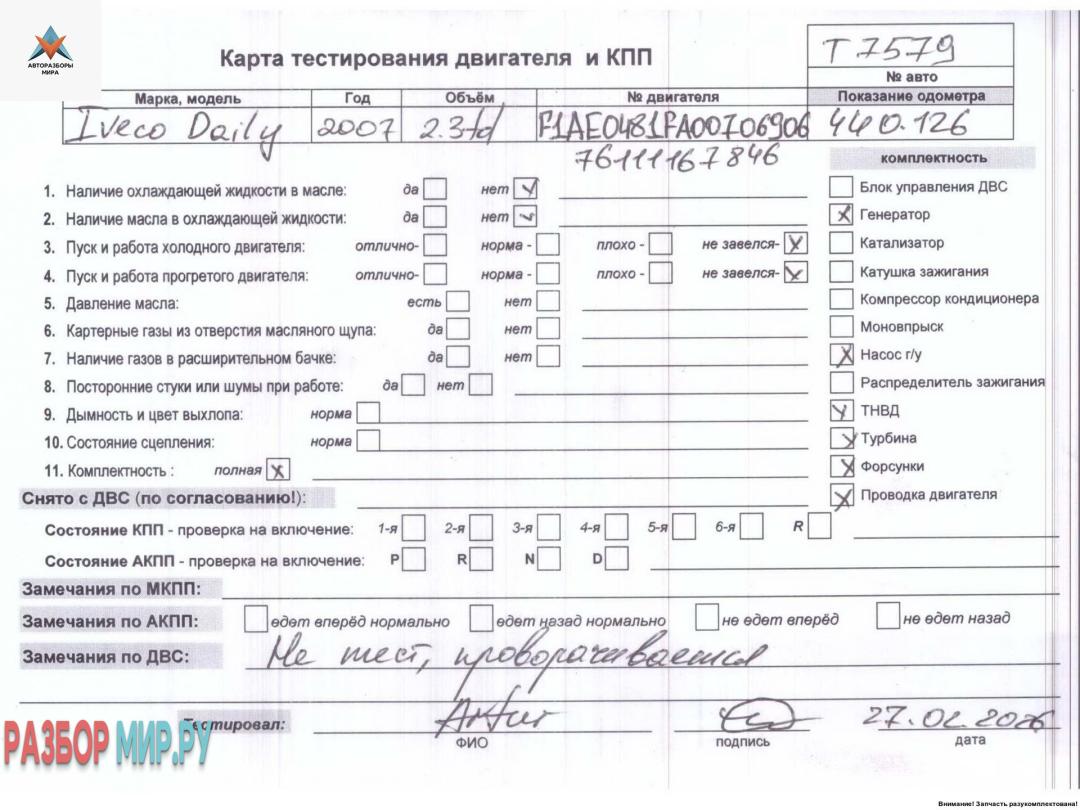 АВТОРАЗБОРЫ
МИРА
Карта тестирования двигателя и КПП
T 7579
№ авто
Марка, модель Год Объём № двигателя Показание одометра
Iveco Daily 2007 2.3td F1AE0481FA00706906 440.126
76111167846
комплектность
1. Наличие охлаждающей жидкости в масле: да нет
Блок управления ДВС
2. Наличие масла в охлаждающей жидкости: да нет
Генератор
3. Пуск и работа холодного двигателя: отлично- норма - плохо - не завелся-
Катализатор
4. Пуск и работа прогретого двигателя: отлично- норма - плохо - не завелся-
Катушка зажигания
5. Давление масла: есть нет
Компрессор кондиционера
6. Картерные газы из отверстия масляного щупа: да нет
Моновпрыск
7. Наличие газов в расширительном бачке: да нет
Насос г/у
8. Посторонние стуки или шумы при работе: да нет
Распределитель зажигания
9. Дымность и цвет выхлопа: норма
ТНВД
10. Состояние сцепления: норма
Турбина
11. Комплектность : полная
Форсунки
Снято с ДВС (по согласованию!):
Проводка двигателя
Состояние КПП - проверка на включение: 1-я 2-я 3-я 4-я 5-я 6-я R
Состояние АКПП - проверка на включение: P R N D
Замечания по МКПП:
Замечания по АКПП: едет вперёд нормально едет назад нормально не едет вперёд не едет назад
Замечания по ДВС: Не тест, проворачивается
Тестировал: Artur 27.02.2026
ФИО подпись дата
РАЗБОР МИР.РУ
Внимание! Запчасть разукомплектована!